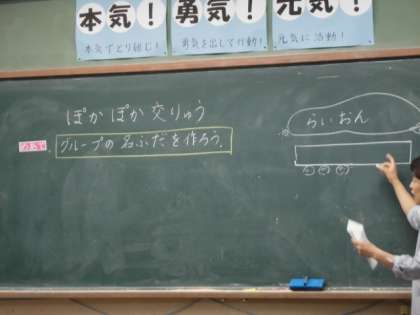 本気！
本気でとり組む！
勇気！
勇気を出して行動！
元気！
元気に活動！
ぽかぽか交りゅう
めあて
グループの名ふだを作ろう。
らいおん